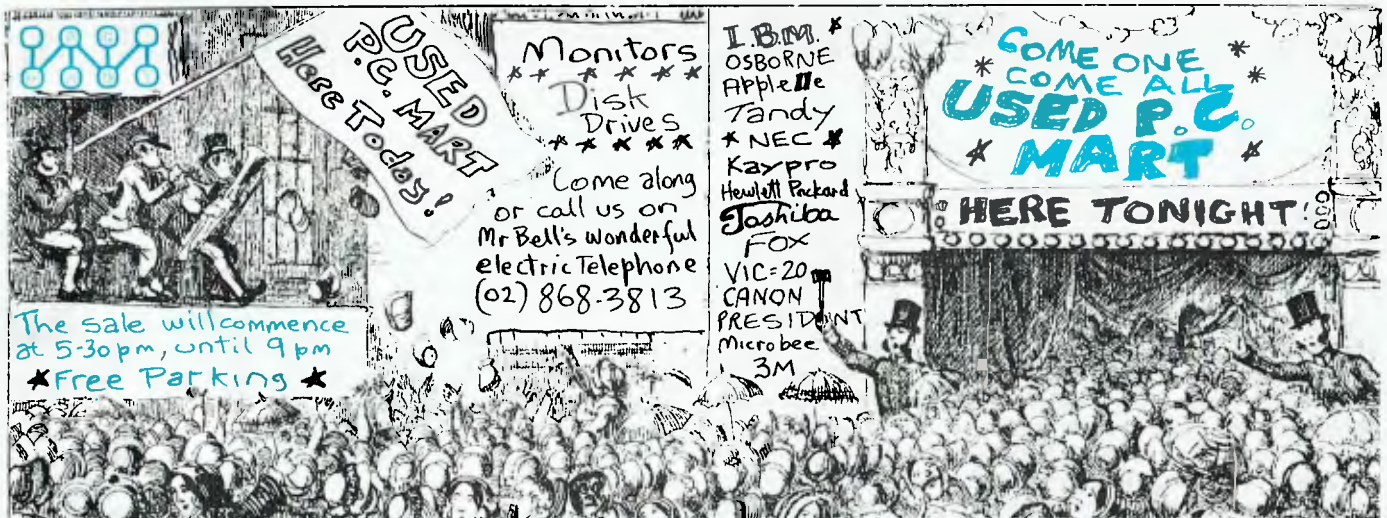 USED
P.C. MART
Here Today!
The sale will commence
at 5-30pm, until 9pm
★Free Parking★
Monitors
Disk
Drives
Come along
or call us on
Mr Bell's wonderful
electric Telephone
(02) 868-3813
I.B.M.
OSBORNE
Apple IIe
Tandy
★ NEC ★
Kaypro
Hewlett Packard
Toshiba
FOX
VIC=20
CANON
PRESIDENT
Microbee
3M
COME ONE
COME ALL
USED P.C.
MART
HERE TONIGHT!